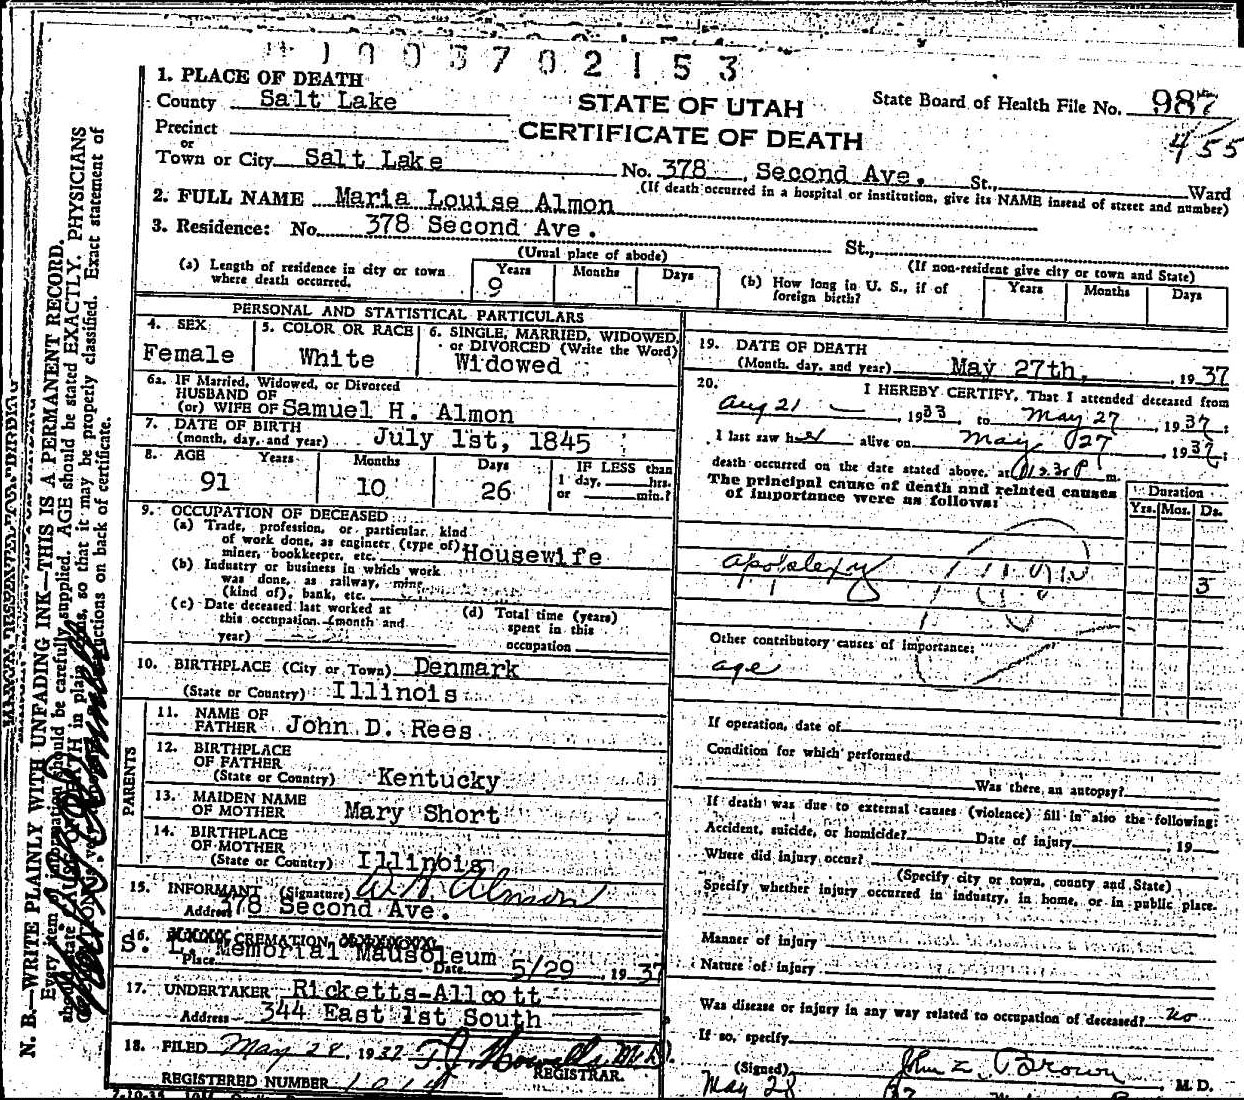 1003702153
1. PLACE OF DEATH
County Salt Lake
STATE OF UTAH
State Board of Health File No. 987
455
Precinct
or
CERTIFICATE OF DEATH
Town or City Salt Lake No. 378 Second Ave. St., Ward
(If death occurred in a hospital or institution, give its NAME instead of street and number)
2. FULL NAME Maria Louise Almon
3. Residence: No. 378 Second Ave. St.,
(Usual place of abode)
(If non-resident give city or town and State)
(a) Length of residence in city or town where death occurred.
Years Months Days
9
(b) How long in U. S., if of foreign birth?
Years Months Days
PERSONAL AND STATISTICAL PARTICULARS
4. SEX
Female
5. COLOR OR RACE
White
6. SINGLE, MARRIED, WIDOWED, or DIVORCED (Write the Word)
Widowed
6a. IF Married, Widowed, or Divorced
HUSBAND OF
(or) WIFE OF Samuel H. Almon
7. DATE OF BIRTH
(month, day, and year) July 1st, 1845
8. AGE Years Months Days
91 10 26
IF LESS than
1 day, hrs.
or min.?
9. OCCUPATION OF DECEASED
(a) Trade, profession, or particular kind
of work done, as engineer (type of)
miner, bookkeeper, etc. Housewife
(b) Industry or business in which work
was done, as railway, mine
(kind of), bank, etc.
(c) Date deceased last worked at
this occupation (month and
year)
(d) Total time (years)
spent in this
occupation
10. BIRTHPLACE (City or Town) Denmark
(State or Country) Illinois
PARENTS
11. NAME OF
FATHER John D. Rees
12. BIRTHPLACE
OF FATHER
(State or Country) Kentucky
13. MAIDEN NAME
OF MOTHER Mary Short
14. BIRTHPLACE
OF MOTHER
(State or Country) Illinois
15. INFORMANT (Signature) W. H. Almon
Address 378 Second Ave.
16. CREMATION,
Place S. L. Memorial Mausoleum Date 5/29, 1937
17. UNDERTAKER Ricketts-Allcott
Address 344 East 1st South
18. FILED May 28, 1937 T. J. Howells M.D.
REGISTRAR.
REGISTERED NUMBER 1014
19. DATE OF DEATH
(Month, day, and year) May 27th, , 1937
20. I HEREBY CERTIFY, That I attended deceased from
Aug 21, 1933, to May 27, 1937:
I last saw her alive on May 27, 1937;
death occurred on the date stated above, at m.
The principal cause of death and related causes
of importance were as follows:
Duration
Yrs. Mos. Ds.
apoplexy 3
Other contributory causes of importance:
age
If operation, date of
Condition for which performed
Was there an autopsy?
If death was due to external causes (violence) fill in also the following:
Accident, suicide, or homicide? Date of injury , 19
Where did injury occur?
(Specify city or town, county and State)
Specify whether injury occurred in industry, in home, or in public place.
Manner of injury
Nature of injury
Was disease or injury in any way related to occupation of deceased? no
If so, specify
(Signed) John Z. Brown, M. D.
May 28 37
N. B.—WRITE PLAINLY WITH UNFADING INK—THIS IS A PERMANENT RECORD.
Every item of information should be carefully supplied. AGE should be stated EXACTLY. PHYSICIANS
should state in plain terms, so that it may be properly classified. Exact statement of
instructions on back of certificate.